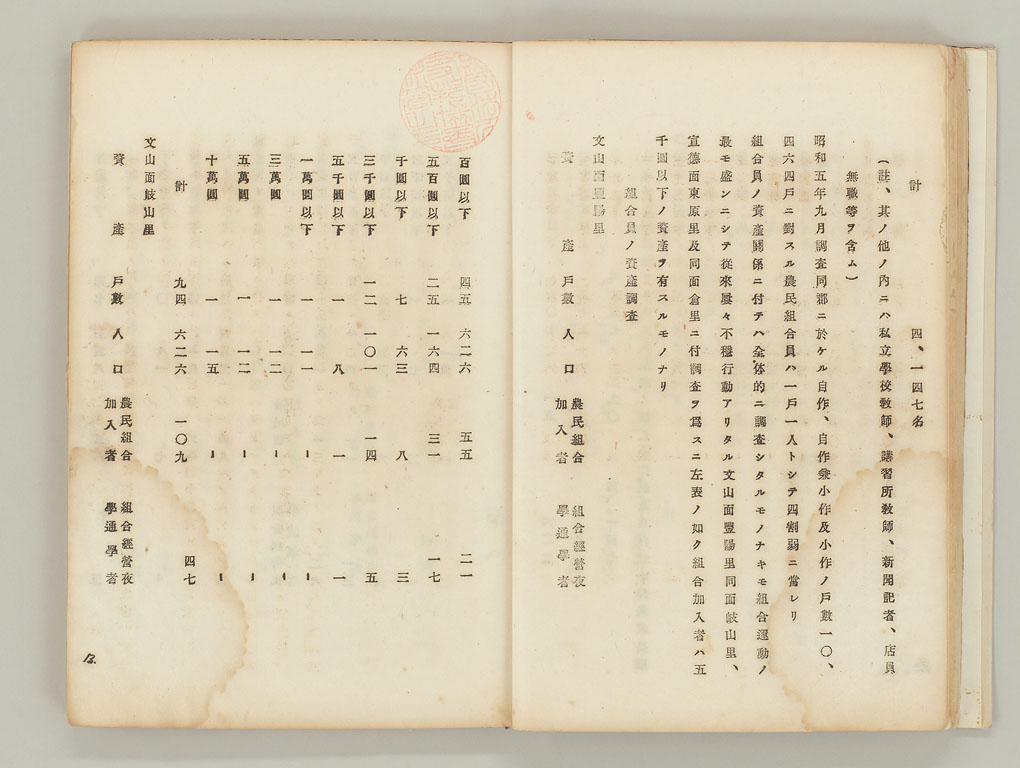 計　四、一四七名
(註、其ノ他ノ內ニハ私立學校敎師、講習所敎師、新聞記者、店員
無職等ヲ含ム)
昭和五年九月調査同郡ニ於ケル自作、自作兼小作及小作ノ戶數一〇、
四六四戶ニ對スル農民組合員ハ一戶一人トシテ四割弱ニ當レリ
組合員ノ資產關係ニ付テハ全体的ニ調査シタルモノナキモ組合運動ノ
最モ盛ンニシテ從來屢々不穩行動アリタル文山面豐陽里同面歧山里、
宣德面東原里及同面倉里ニ付調査ヲ爲スニ左表ノ如ク組合加入者ハ五
千圓以下ノ資產ヲ有スルモノナリ
組合員ノ資產調査
文山面豐陽里
資產　戶數　人口　農民組合加入者　組合經營夜學通學者
百圓以下　四五　六二六　五五　二一
五百圓以下　二五　一六四　三一　一七
千圓以下　七　六三　八　三
三千圓以下　一二　一〇一　一四　五
五千圓以下　一　八　一　一
一萬圓以下　一　一一　ー　ー
三萬圓　一　一二　ー　ー
五萬圓　一　一二　ー　ー
十萬圓　一　一五　ー　ー
計　九四　六二六　一〇九　四七
文山面歧山里
資產　戶數　人口　農民組合加入者　組合經營夜學通學者